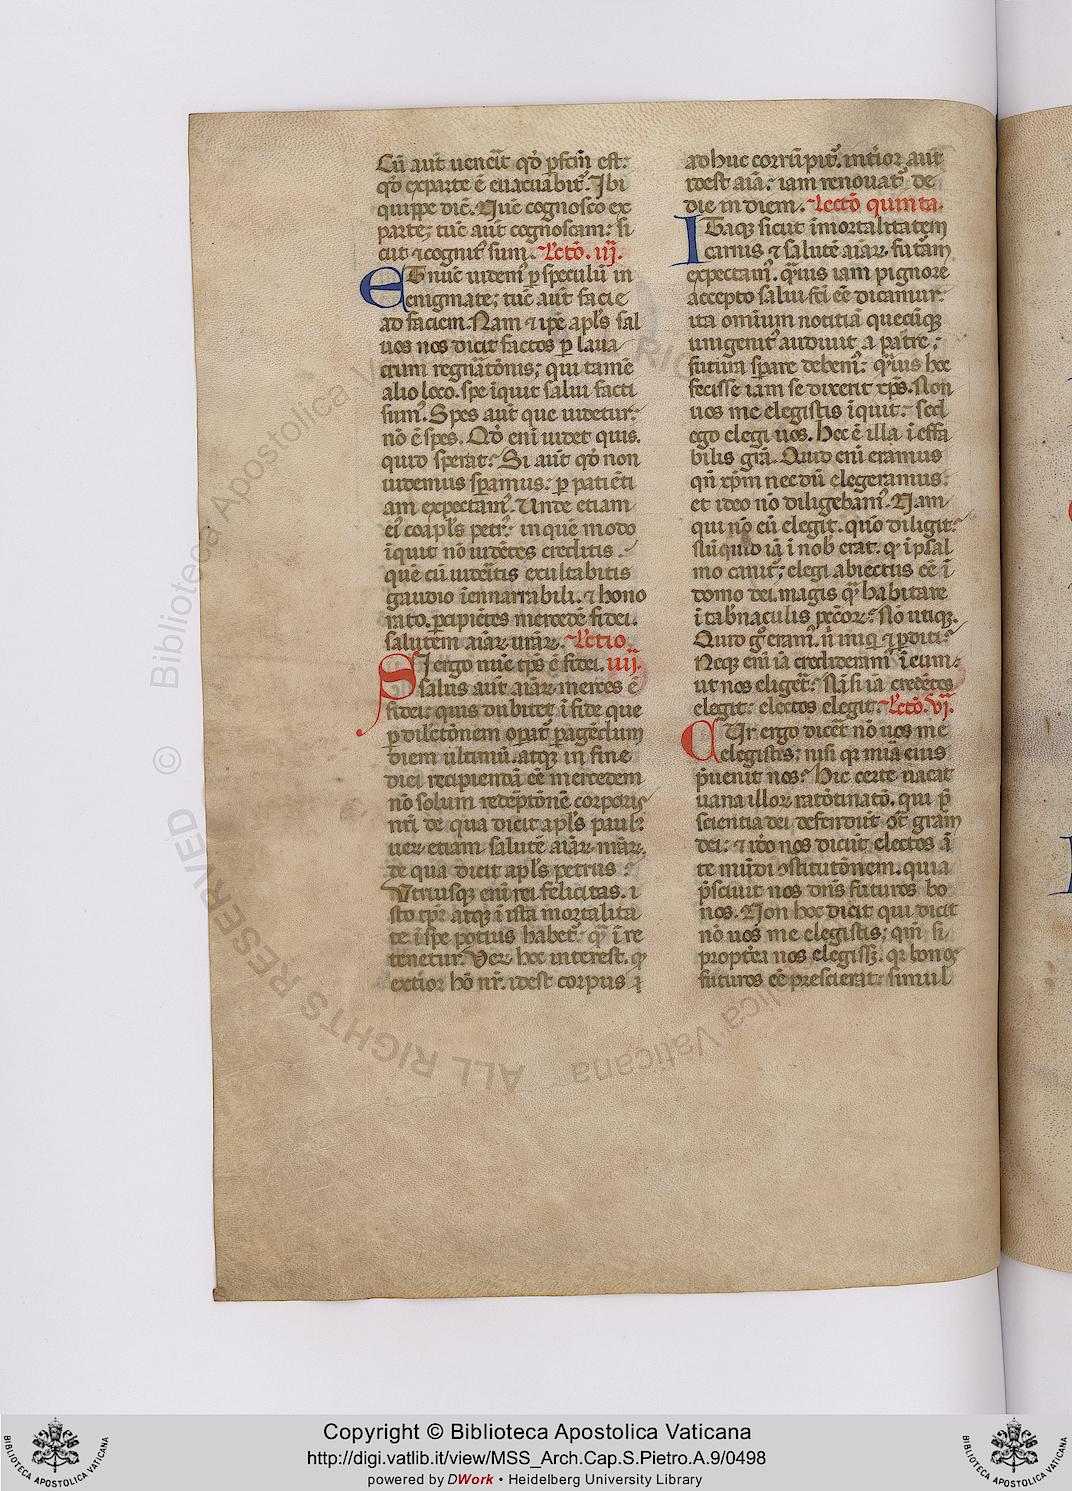 Cū aut̄ uen̄it qđ ꝑfc̄m est:
qđ ex parte ē euacuabit᷑. Ibi
quippe dic̄. Nūc cognosco ex
parte; tūc aut̄ cognoscam: si
cut ⁊ cognit᷒ sum. Lect̄o. iij.
Et nūc uidem᷒ ꝑ speculū in
enigmate; tūc aut̄ facie
ad faciem. Nam ⁊ ip̄e apl̄s sal
uos nos dicit factos ꝑ laua
crum regn̄atōnis; qui tamē
alio loco. spe īquit salui facti
sum᷒. Spes aut̄ que uidetur:
nō ē spes. Qđ eni uidet quis.
quid sperat: Si aut̄ qđ non
uidemus sꝑamus: ꝑ patiēti
am expectam᷒. Unde etiam
ei᷒ coapl̄s petr᷒: in quē modo
īquit nō uidētes creditis.
quē cū uidēitis exultabitis
gaudio īennarrabili. ⁊ hono
rato. ꝑcipiētes mercedē fidei.
salutem aīaꝝ uraꝝ. Lectio
Si ergo nūc tꝑs ē fidei. iiij.
salus aut̄ aīaꝝ merces ē
fidei: quis dubitet ī fide que
ꝑ dilcētōnem oꝑat᷑ ꝑagēdum
diem ultimū. atqꝫ in fine
diei recipiendā eē mercedem
nō solum redēptōnē corporis
nr̄i de qua dicit apl̄s paul᷒:
ueꝝ etiam salutē aīaꝝ nr̄aꝝ.
de qua dicit apl̄s petrus:
Vtriusqꝫ eni rei felicitas. i
sto tꝑe atqꝫ ī ista mortalita
te ī spe potius habet᷑. qͣꝫ ī re
tenetur. Veꝝ hoc interest. qꝫ
exterior hō nr̄. idest corpus
adhuc corrūpit᷑. int̄ior aut̄
idest aīa: iam renouat᷑ de
die in diem. Lectō quinta.
Itaqꝫ sicut īmortalitatem
carnis ⁊ salutē aīaꝝ futam
expectam᷒. qͣuis iam pignore
accepto salui fc̄i eē dicamur:
ita omnium notitiā quecūqꝫ
unigenit᷒ audiuit a patre;
futura sꝑare debem᷒: qͣuis hec
fecisse iam se dixerit xp̄s. Non
uos me elegistis īquit: sed
ego elegi uos. Hec ē illa ī effa
bilis grā. Quid eni eramus
qn̄ xp̄m nec dū elegeramus:
et ideo nō diligebam᷒. Nam
qui nō eū elegit. quō diligit:
Nūquid iā ī nob̄ erat. qꝫ ī psal
mo canit᷑; elegi abiectus eē ī
domo dei. magis qͣꝫ habitare
ī tab̄naculis pecc̄oꝝ: Nō utiqꝫ.
Quid gͦ eram᷒. n̄ iniqͥ ⁊ ꝑditi:
Neqꝫ eni iā credideram᷒ ī eum:
ut nos eliget᷑: Nā si iā credētes
elegit: electos elegit. Lectō. vi.
Cur ergo dicet̄ nō uos me
elegistis; nisi qꝫ mīa eius
p̄uenit nos: Hic certe uacat
uana illoꝝ ratōtinatō. qui p̄
scientia dei defendūt ꝯͣ gram
dei: ⁊ iđo nos dicūt electos ā
te mūdi ꝯstitutōnem. quia
p̄sciuit nos dn̄s futuros bo
nos. Non hoc dicit qui dicit
nō uos me elegistis; qm̄ si
propterea nos elegissꝫ. qꝫ bonos
futuros eē prescierat: simul
Copyright © Biblioteca Apostolica Vaticana
http://digi.vatlib.it/view/MSS_Arch.Cap.S.Pietro.A.9/0498
powered by DWork • Heidelberg University Library
BIBLIOTECA APOSTOLICA VATICANA
BIBLIOTECA APOSTOLICA VATICANA
© Biblioteca Apostolica Vaticana
ALL RIGHTS RESERVED